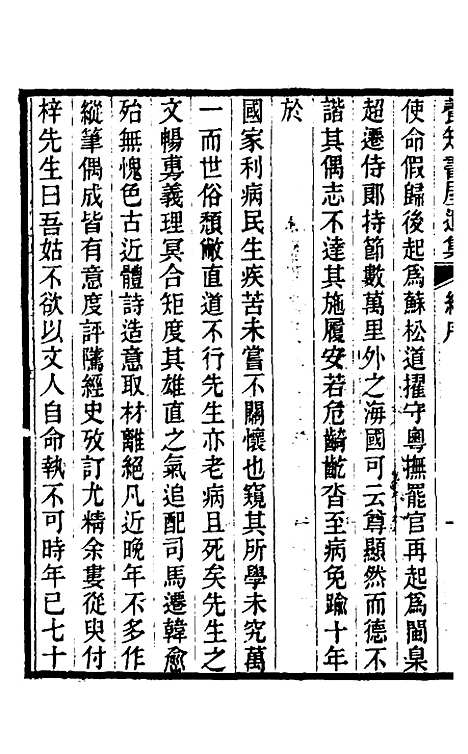 養知書屋遺集 總序
使命假歸後起爲蘇松道擢守粵撫罷官再起爲閩臬
超遷侍郎持節數萬里外之海國可云尊顯然而德不
諧其偶志不達其施履安若危齮齕沓至病免踰十年
於
國家利病民生疾苦未嘗不關懷也窺其所學未究萬
一而世俗頹敝直道不行先生亦老病且死矣先生之
文暢專義理冥合矩度其雄直之氣追配司馬遷韓愈
殆無愧色古近體詩造意取材離絕凡近晚年不多作
縱筆偶成皆有意度評隲經史攷訂尤精余婁從臾付
梓先生曰吾姑不欲以文人自命執不可時年已七十